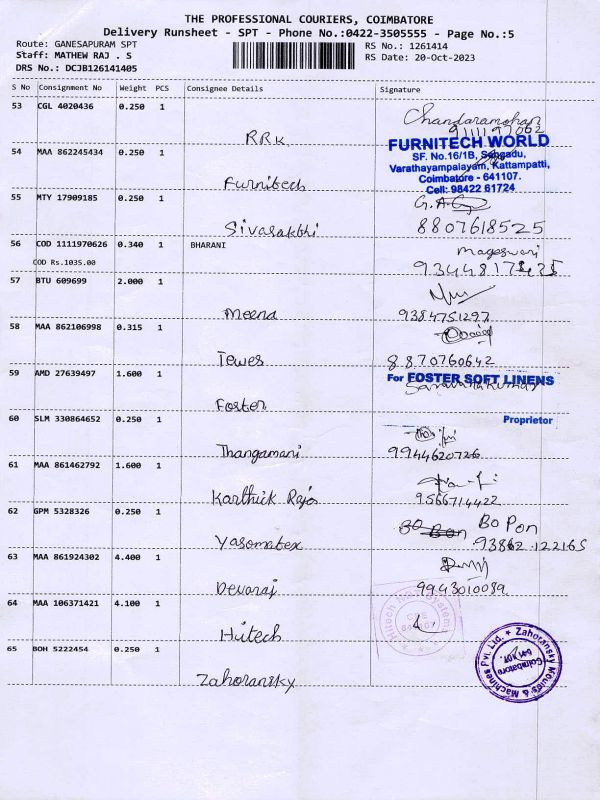 THE PROFESSIONAL COURIERS, COIMBATORE
Delivery Runsheet - SPT - Phone No.:0422-3505555 - Page No.:5
Route: GANESAPURAM SPT
RS No.: 1261414
Staff: MATHEW RAJ . S
RS Date: 20-Oct-2023
DRS No.: DCJB126141405
S No Consignment No Weight PCS Consignee Details Signature
53 CGL 4020436 0.250 1
Chandaramohan
RRK
54 MAA 862245434 0.250 1
FURNITECH WORLD
SF. No.16/1B,
Varathayampalayam, Kattampatti,
Coimbatore - 641107.
Cell: 98422 61724
Furnitech
55 MTY 17909185 0.250 1
Sivasakthi
8807618525
56 COD 1111970626 0.340 1 BHARANI
COD Rs.1035.00
Mageswari
57 BTU 609699 2.000 1
Meena
9384751297
58 MAA 862106998 0.315 1
Tewes
8870760642
59 AMD 27639497 1.600 1
For FOSTER SOFT LINENS
Foster
60 SLM 330864652 0.250 1
Proprietor
Thangamani
9944620726
61 MAA 861462792 1.600 1
Karthick Raja
9566714422
62 GPM 5328326 0.250 1
Bo Pon
Yasomatex
93862 122165
63 MAA 861924302 4.400 1
Devaraj
9943010089
64 MAA 106371421 4.100 1
Hitech
65 BOH 5222454 0.250 1
Zahoransky
Zahoransky Moulds & Machines Pvt. Ltd.
Coimbatore
641 107.